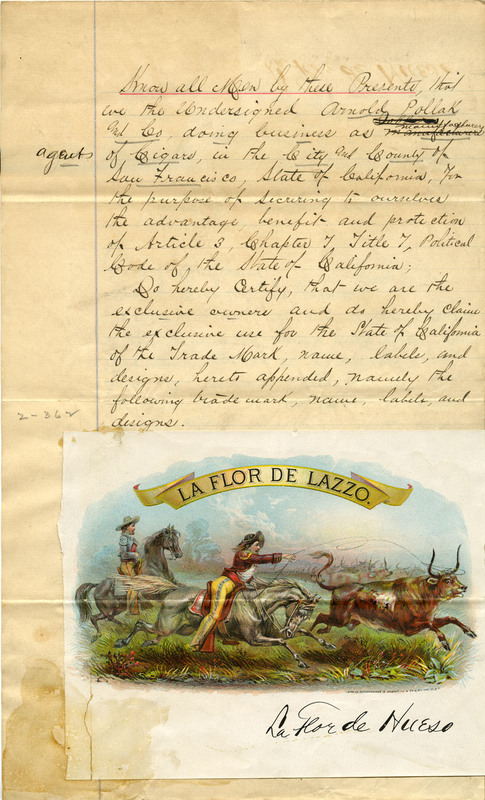 Know all Men by these Presents, that
we the Undersigned Arnold Pollak
and Co, doing business as manufacturers
agents
of Cigars, in the City and County of
San Francisco, State of California, For
the purpose of securing to ourselves
the advantage, benefit and protection
of Article 3, Chapter 7, Title 7, Political
Code of the State of California;
Do hereby Certify, that we are the
exclusive owners and do hereby claim
the exclusive use for the State of California
of the Trade Mark, name, labels, and
designs, hereto appended, namely the
following trade mark, name, labels, and
designs.
2-362
LA FLOR DE LAZZO.
La Flor de Hueso